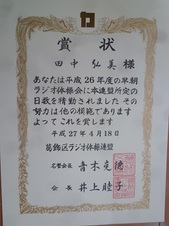 賞状
田中弘美様
あなたは平成26年度の早朝
ラジオ体操会に本連盟所定の
日数を精勤されました その
努力は他の模範であります
よってこれを賞します
平成27年4月18日
葛飾区ラジオ体操連盟
名誉会長 青木克德
会長 井上睦子